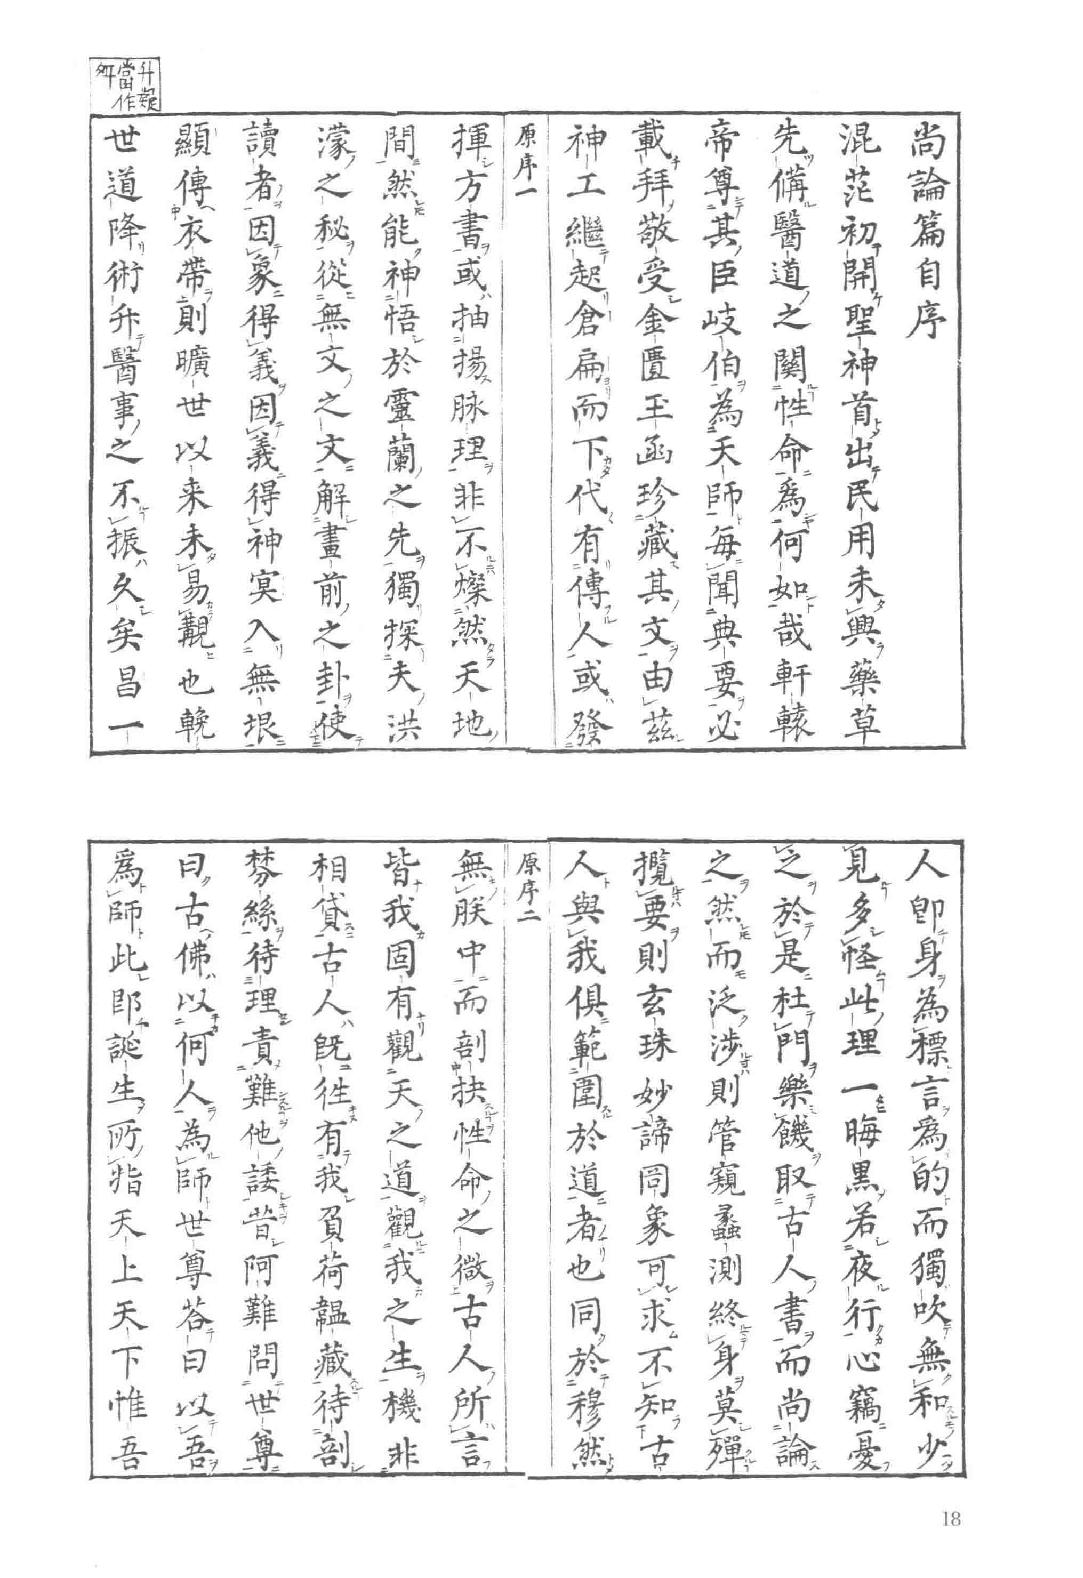 升報
當作
舛
尚論篇自序
混茫初開聖神首出民用未興藥草
先備醫道之關性命爲何如哉軒轅
帝尊其臣岐伯為天師每聞典要必
載拜敬受金匱玉函珍藏其文由茲
神工繼起倉扁而下代有傳人或發
原序一
揮方書或抽揚脉理非不燦然天地
間然能神悟於靈蘭之先獨探夫洪
濛之秘從無文之文解畫前之卦使
讀者因象得義因義得神冥入無垠
顯傳衣帶則曠世以来未易覯也輓
世道降術升醫事之不振久矣昌一
人卽身為標言爲的而獨吹無和少
見多怪此理一晦黑若夜行心竊憂
之於是杜門樂饑取古人書而尚論
之然而泛涉則管窺蠡測終身莫殫
攬要則玄珠妙諦罔象可求不知古
人與我俱範圍於道者也同於穆然
原序二
無朕中而剖抉性命之微古人所言
皆我固有觀天之道觀我之生機非
相貸古人旣徃有我負荷韞藏待剖
棼絲待理責難他諉昔阿難問世尊
曰古佛以何人為師世尊答曰以吾
爲師此卽誕生所指天上天下惟吾
18